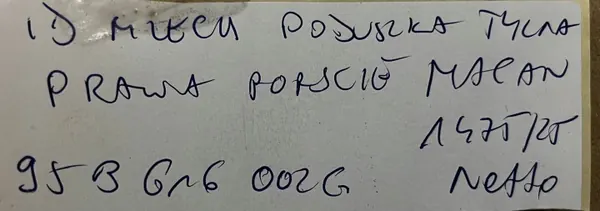 1) MIECH PODUSZKA TYLNA
PRAWA PORSCHE MACAN
1475/25
95B 616 002G Netto